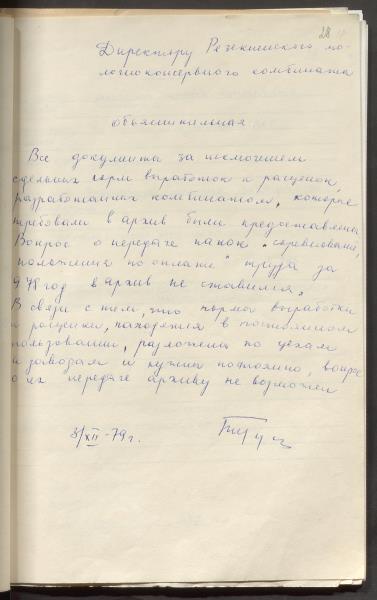 28
Директору Резекненского мо-
лочноконсервного комбината
объяснительная
Все документы за исключением
сдельных норм выработок и расценок,
разработанных комбинатом, которые
требовали в архив были предоставлены
Вопрос о передаче папок „соревнование",
„положения по оплате" труда за
1978 год в архив не ставился.
В связи с тем, что нормы выработки
и расценки, находятся в постоянном
пользовании, разложены по цехам
и заводам и нужны постоянно, вопрос
о их передаче архиву не возможен
3/XII-79 г.